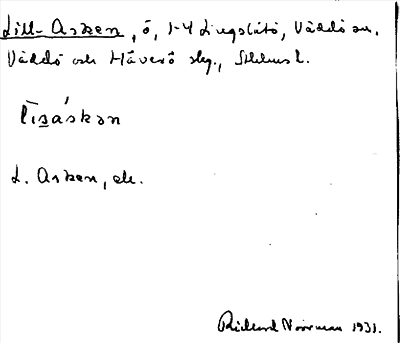 Lill-Asken, ö, 1-4 Lingslätö, Väddö sn,
Väddö och Häverö slg., Sthlms l.
L. Asken, ek.
Richard Norrman 1931.